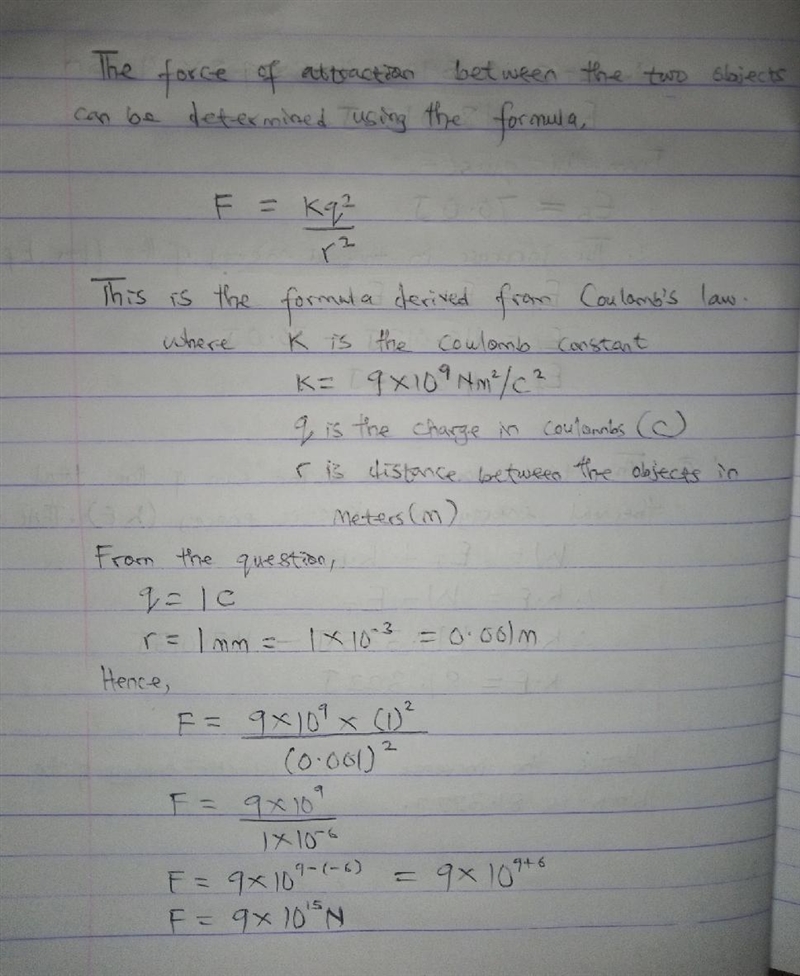 The force of attraction between the two objects
can be determined using the formula,
F = Kq²/r²
This is the formula derived from Coulomb's law.
where K is the Coulomb constant
K = 9×10⁹ Nm²/C²
q is the charge in coulombs (C)
r is distance between the objects in
meters (m)
From the question,
q = 1C
r = 1mm = 1×10⁻³ = 0.001m
Hence,
F = 9×10⁹ × (1)²/(0.001)²
F = 9×10⁹/1×10⁻⁶
F = 9×10⁹⁻⁽⁻⁶⁾ = 9×10⁹⁺⁶
F = 9×10¹⁵N